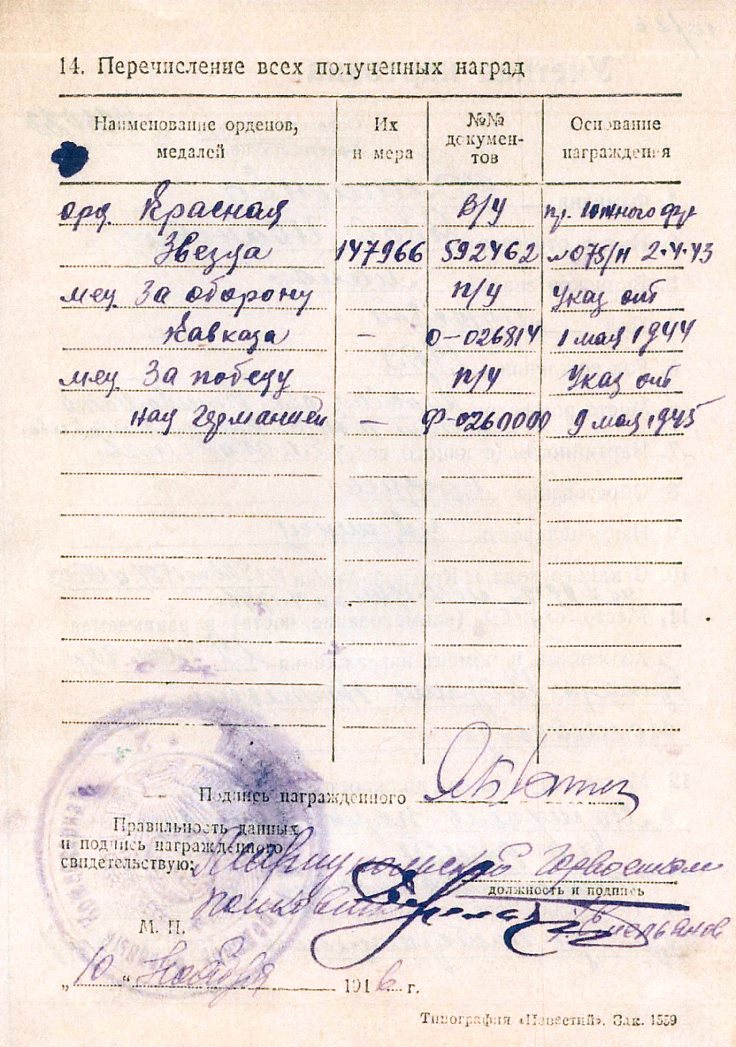 14. Перечисление всех полученных наград
Наименование орденов, медалей
Их номера
№№ документов
Основание награждения
орд. Красная В/у пр. Южного фр
Звезда 147966 592462 №075/н 2.4.43
мед. За оборону п/у Указ от
Кавказа — О-026814 1 мая 1944
мед. За победу п/у Указ от
над Германией — Ф-0260000 9 мая 1945
Подпись награжденного
Правильность данных
и подпись награжденного
свидетельствую:
Мариупольский Горвоенком
должность и подпись
М. П.
„10“ Ноября 1946 г.
Типография «Известий». Зак. 1559